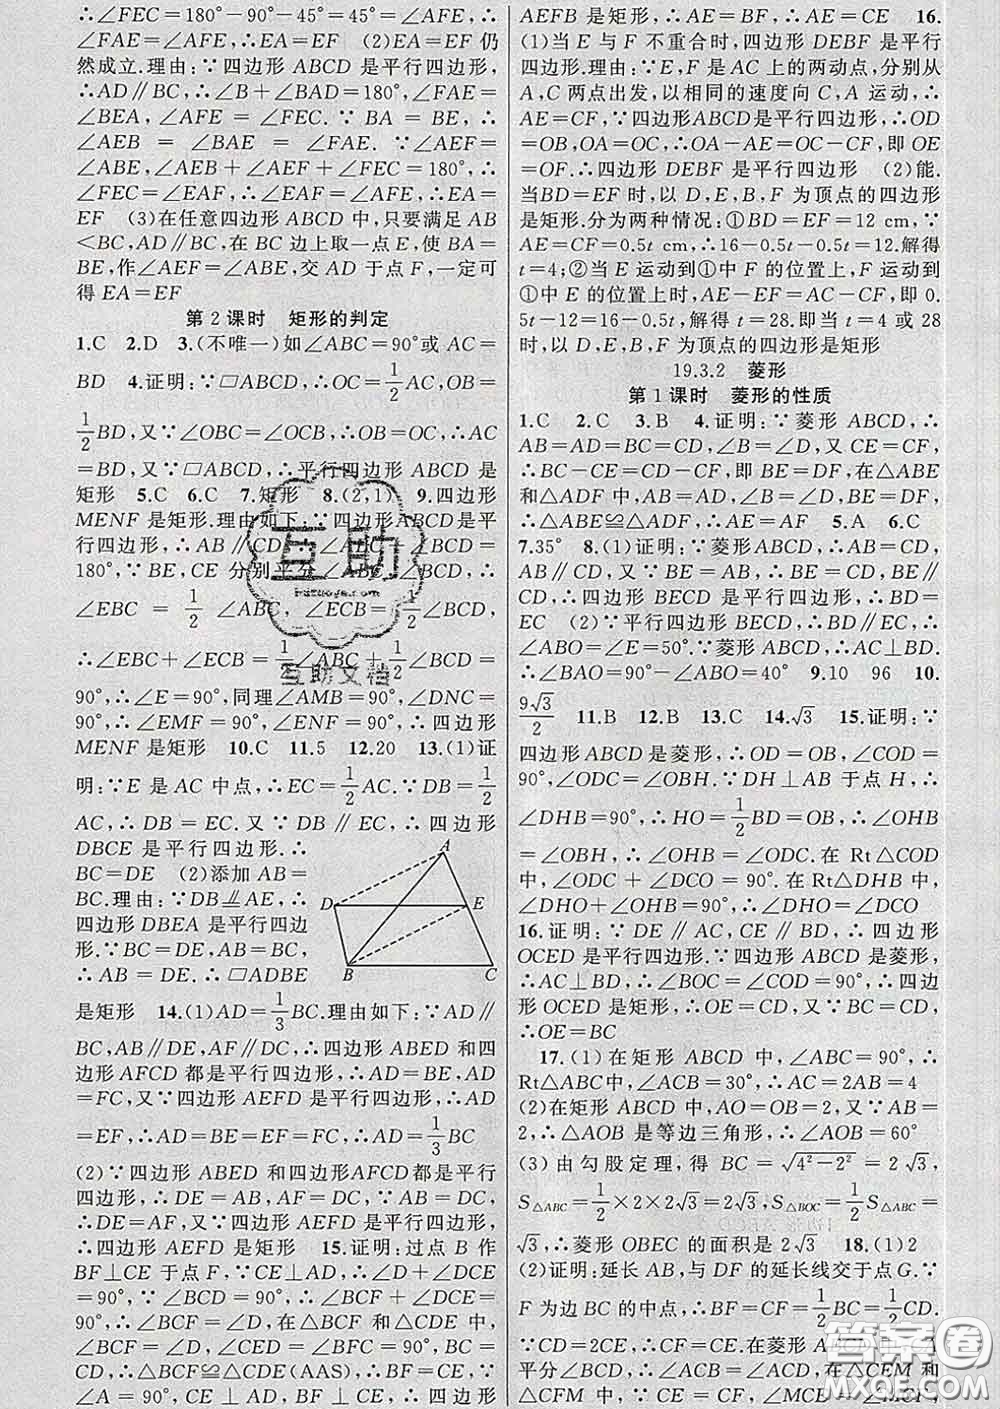 ∴∠FEC=180°−90°−45°=45°=∠AFE,∴
∠FAE=∠AFE,∴EA=EF (2)EA=EF 仍
然成立.理由:∵四边形 ABCD 是平行四边形,
∴AD∥BC,∴∠B+∠BAD=180°,∠FAE=
∠BEA,∠AFE=∠FEC.∵BA=BE,∴
∠AEB=∠BAE=∠FAE.∵∠AEF=
∠ABE,∠AEB+∠AEF+∠FEC=180°,∴
∠FEC=∠EAF,∴∠EAF=∠AFE,∴EA=
EF (3)在任意四边形 ABCD 中,只要满足 AB
<BC,AD∥BC,在 BC 边上取一点 E,使 BA=
BE,作∠AEF=∠ABE,交 AD 于点 F,一定可
得 EA=EF
第 2 课时 矩形的判定
1.C 2.D 3.(不唯一)如∠ABC=90°或 AC=
BD 4.证明:∵▱ABCD,∴OC=1/2AC,OB=
1/2BD,又∵∠OBC=∠OCB,∴OB=OC,∴AC
=BD,又∵▱ABCD,∴平行四边形 ABCD 是
矩形 5.C 6.C 7.矩形 8.(2,1) 9.四边形
MENF 是矩形.理由如下:∵四边形ABCD是平
行四边形,∴AB∥CD
180°,∵BE,CE 分别平分∠ABC,∠BCD,∴
∠EBC=1/2∠ABC,∠ECB=1/2∠BCD,
∴∠EBC+∠ECB=1/2∠ABC+1/2∠BCD=
90°,∴∠E=90°,同理∠AMB=90°,∠DNC=
90°,∴∠EMF=90°,∠ENF=90°,∴四边形
MENF 是矩形 10.C 11.5 12.20 13.(1)证
明:∵E 是 AC 中点,∴EC=1/2AC.∵DB=1/2
AC,∴DB=EC.又∵DB∥EC,∴四边形
DBCE 是平行四边形.∴
BC=DE (2)添加 AB=
BC.理由:∵DB⫽AE,∴
四边形 DBEA 是平行四边
形.∵BC=DE,AB=BC,
∴AB=DE.∴▱ADBE
是矩形 14.(1)AD=1/3BC.理由如下:∵AD∥
BC,AB∥DE,AF∥DC,∴四边形 ABED 和四
边形AFCD 都是平行四边形,∴AD=BE,AD
=FC,又∵四边形 AEFD 是平行四边形,∴AD
=EF,∴AD=BE=EF=FC,∴AD=1/3BC
(2)∵四边形 ABED 和四边形AFCD都是平行
四边形,∴DE=AB,AF=DC.∵AB=DC,
∴DE=AF,又∵四边形 AEFD 是平行四边形,
∴四边形 AEFD 是矩形 15.证明:过点 B 作
BF⊥CE 于点 F,∵CE⊥AD,∴∠D+∠DCE
=90°,∵∠BCD=90°,∴∠BCF+∠DCE=
90°,∴∠BCF=∠D,在△BCF和△CDE中,
∠BCF=∠D,∠CFB=∠CED=90°,BC=
CD,∴△BCF≌△CDE(AAS),∴BF=CE,又
∵∠A=90°,CE⊥AD,BF⊥CE,∴四边形
A
D
E
B
C
AEFB 是矩形,∴AE=BF,∴AE=CE 16.
(1)当 E 与 F 不重合时,四边形 DEBF 是平行
四边形.理由:∵E,F 是 AC 上的两动点,分别从
A,C 两点出发,以相同的速度向 C,A 运动,∴
AE=CF,∵四边形ABCD是平行四边形,∴OD
=OB,OA=OC,∴OA−AE=OC−CF,即OE
=OF.∴四边形 DEBF 是平行四边形 (2)能.
当BD=EF 时,以 D,E,B,F 为顶点的四边形
是矩形.分为两种情况:①BD=EF=12 cm,∵
AE=CF=0.5t cm,∴16−0.5t−0.5t=12.解得
t=4;②当 E 运动到①中 F 的位置上,F 运动到
①中 E 的位置上时,AE−EF=AC−CF,即 0.
5t−12=16−0.5t,解得 t=28.即当 t=4 或 28
时,以 D,E,B,F 为顶点的四边形是矩形
19.3.2 菱形
第 1 课时 菱形的性质
1.C 2.C 3.B 4.证明:∵菱形 ABCD,∴
AB=AD=BC=CD,∠B=∠D,又 CE=CF,
∴BC−CE=CD−CF,即 BE=DF,在△ABE
和△ADF 中,AB=AD,∠B=∠D,BE=DF,
∴△ABE≌△ADF,∴AE=AF 5.A 6.C
7.35° 8.(1)证明:∵菱形ABCD,∴AB=CD,
AB∥CD,又∵BE=AB,∴BE=CD,BE∥
CD,∴四边形 BECD 是平行四边形,∴BD=
EC (2)∵平行四边形 BECD,∴BD∥CE,∴
∠ABO=∠E=50°.∵菱形 ABCD,∴AC⊥BD.
∴∠BAO=90°−∠ABO=40° 9.10 96 10.
9√3/2 11.B 12.B 13.C 14.√3 15.证明:∵
四边形 ABCD 是菱形,∴OD=OB,∠COD=
90°,∠ODC=∠OBH.∵DH⊥AB 于点 H,∴
∠DHB=90°,∴HO=1/2BD=OB,∴∠OHB
=∠OBH,∴∠OHB=∠ODC.在 Rt△COD
中,∠ODC+∠DCO=90°.在 Rt△DHB 中,
∠DHO+∠OHB=90°,∴∠DHO=∠DCO
16.证明:∵DE∥AC,CE∥BD,∴四边形
OCED 是平行四边形.∵四边形 ABCD 是菱形,
∴AC⊥BD,∴∠BOC=∠COD=90°,∴四边
形 OCED 是矩形,∴OE=CD,又∵BC=CD,
∴OE=BC
17.(1)在矩形 ABCD 中,∠ABC=90°,∴
Rt△ABC中,∠ACB=30°,∴AC=2AB=4
(2)在矩形 ABCD 中,AO=OB=2,又∵AB=
2,∴△AOB 是等边三角形,∴∠AOB=60°
(3)由勾股定理,得 BC=√4²−2²=2√3,
S△ABC=1/2×2×2√3=2√3,S△BOC=1/2S△ABC=
√3,∴菱形 OBEC 的面积是 2√3 18.(1)2
(2)证明:延长 AB,与 DF 的延长线交于点 G.∵
F 为边 BC 的中点,∴BF=CF=1/2BC=1/2CD.
∵CD=2CE,∴CF=CE.在菱形 ABCD 中,AC
平分∠BCD,∴∠ACB=∠ACD,在△CEM 和
△CFM 中,∵CE=CF,∠MCE=∠MCF,
互助
互助文档
答案圈
MXQE.COM